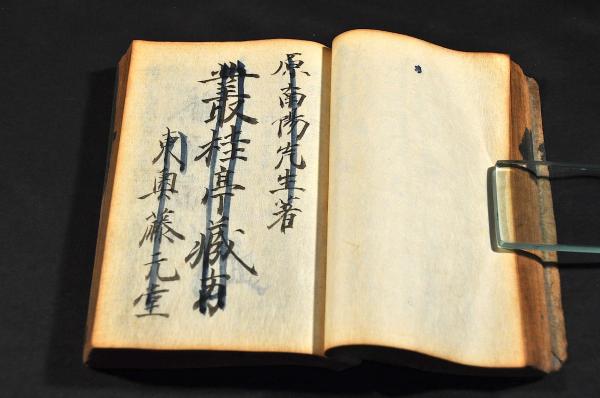 原南陽先生著
叢桂亭藏書
東奥藤元堂